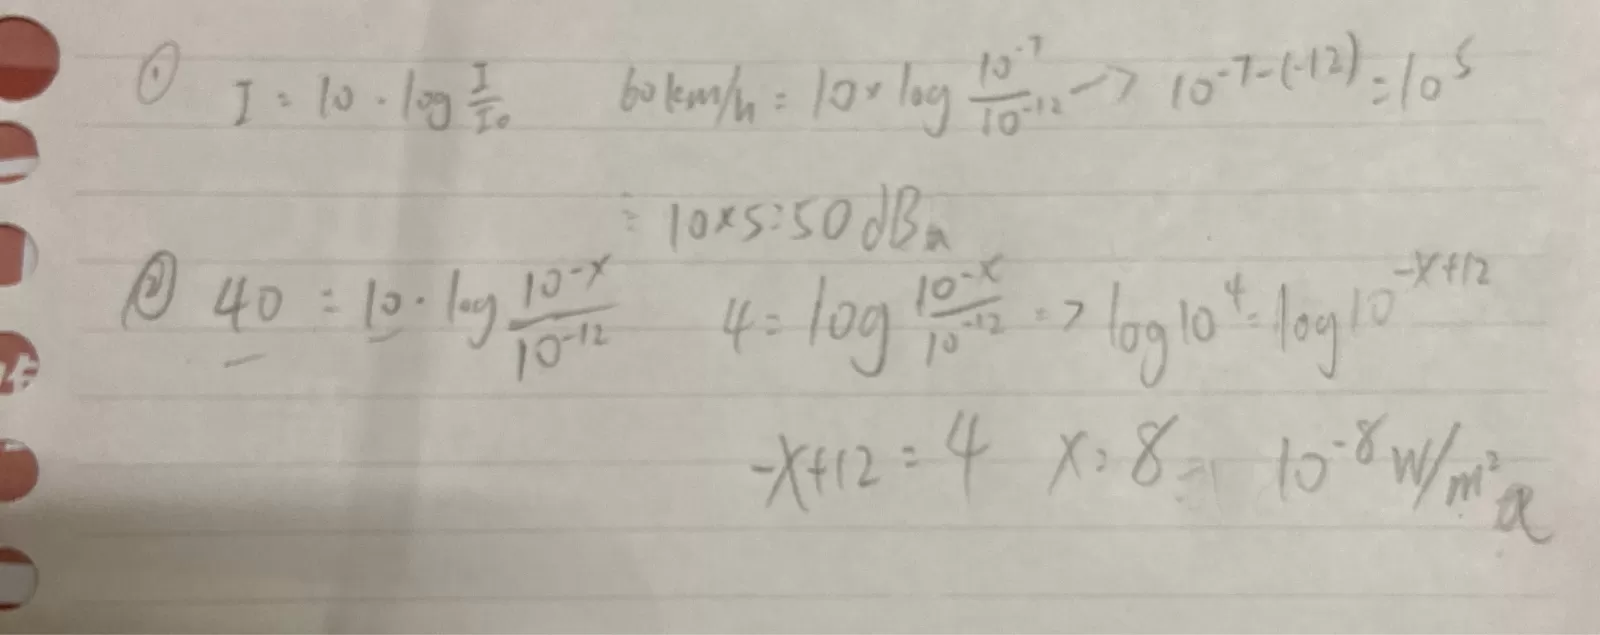 ① I = 10 · log I/I₀ 60km/h = 10 × log 10⁻⁷/10⁻¹² -> 10⁻⁷⁻⁽⁻¹²⁾ = 10⁵
= 10×5 = 50 dB
② 40 = 10 · log 10⁻ˣ/10⁻¹² 4 = log 10⁻ˣ/10⁻¹² => log10⁴ = log10⁻ˣ⁺¹²
-x+12 = 4 x = 8 10⁻⁸ W/m²